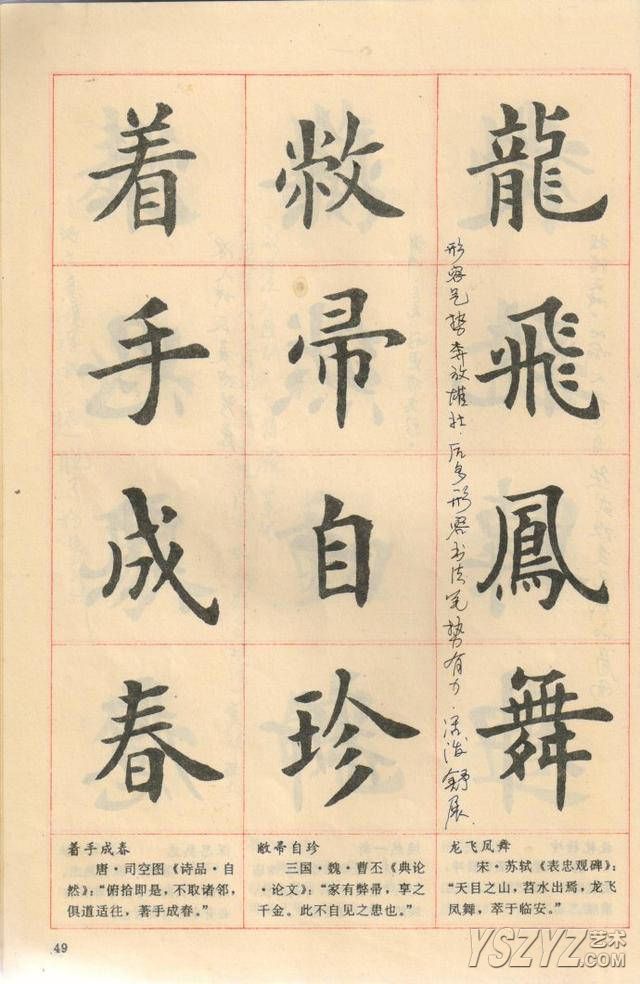 龍飛鳳舞
形容气势奔放雄壮.后多形容书法笔势有力.活泼舒展.
敝帚自珍
着手成春
龙飞凤舞
宋·苏轼《表忠观碑》：
“天目之山，苕水出焉，龙飞
凤舞，萃于临安。”
敝帚自珍
三国·魏·曹丕《典论
·论文》：“家有弊帚，享之
千金。此不自见之患也。”
着手成春
唐·司空图《诗品·自
然》：“俯拾即是，不取诸邻，
俱道适往，著手成春。”
49
YSZYZ艺术
.COM